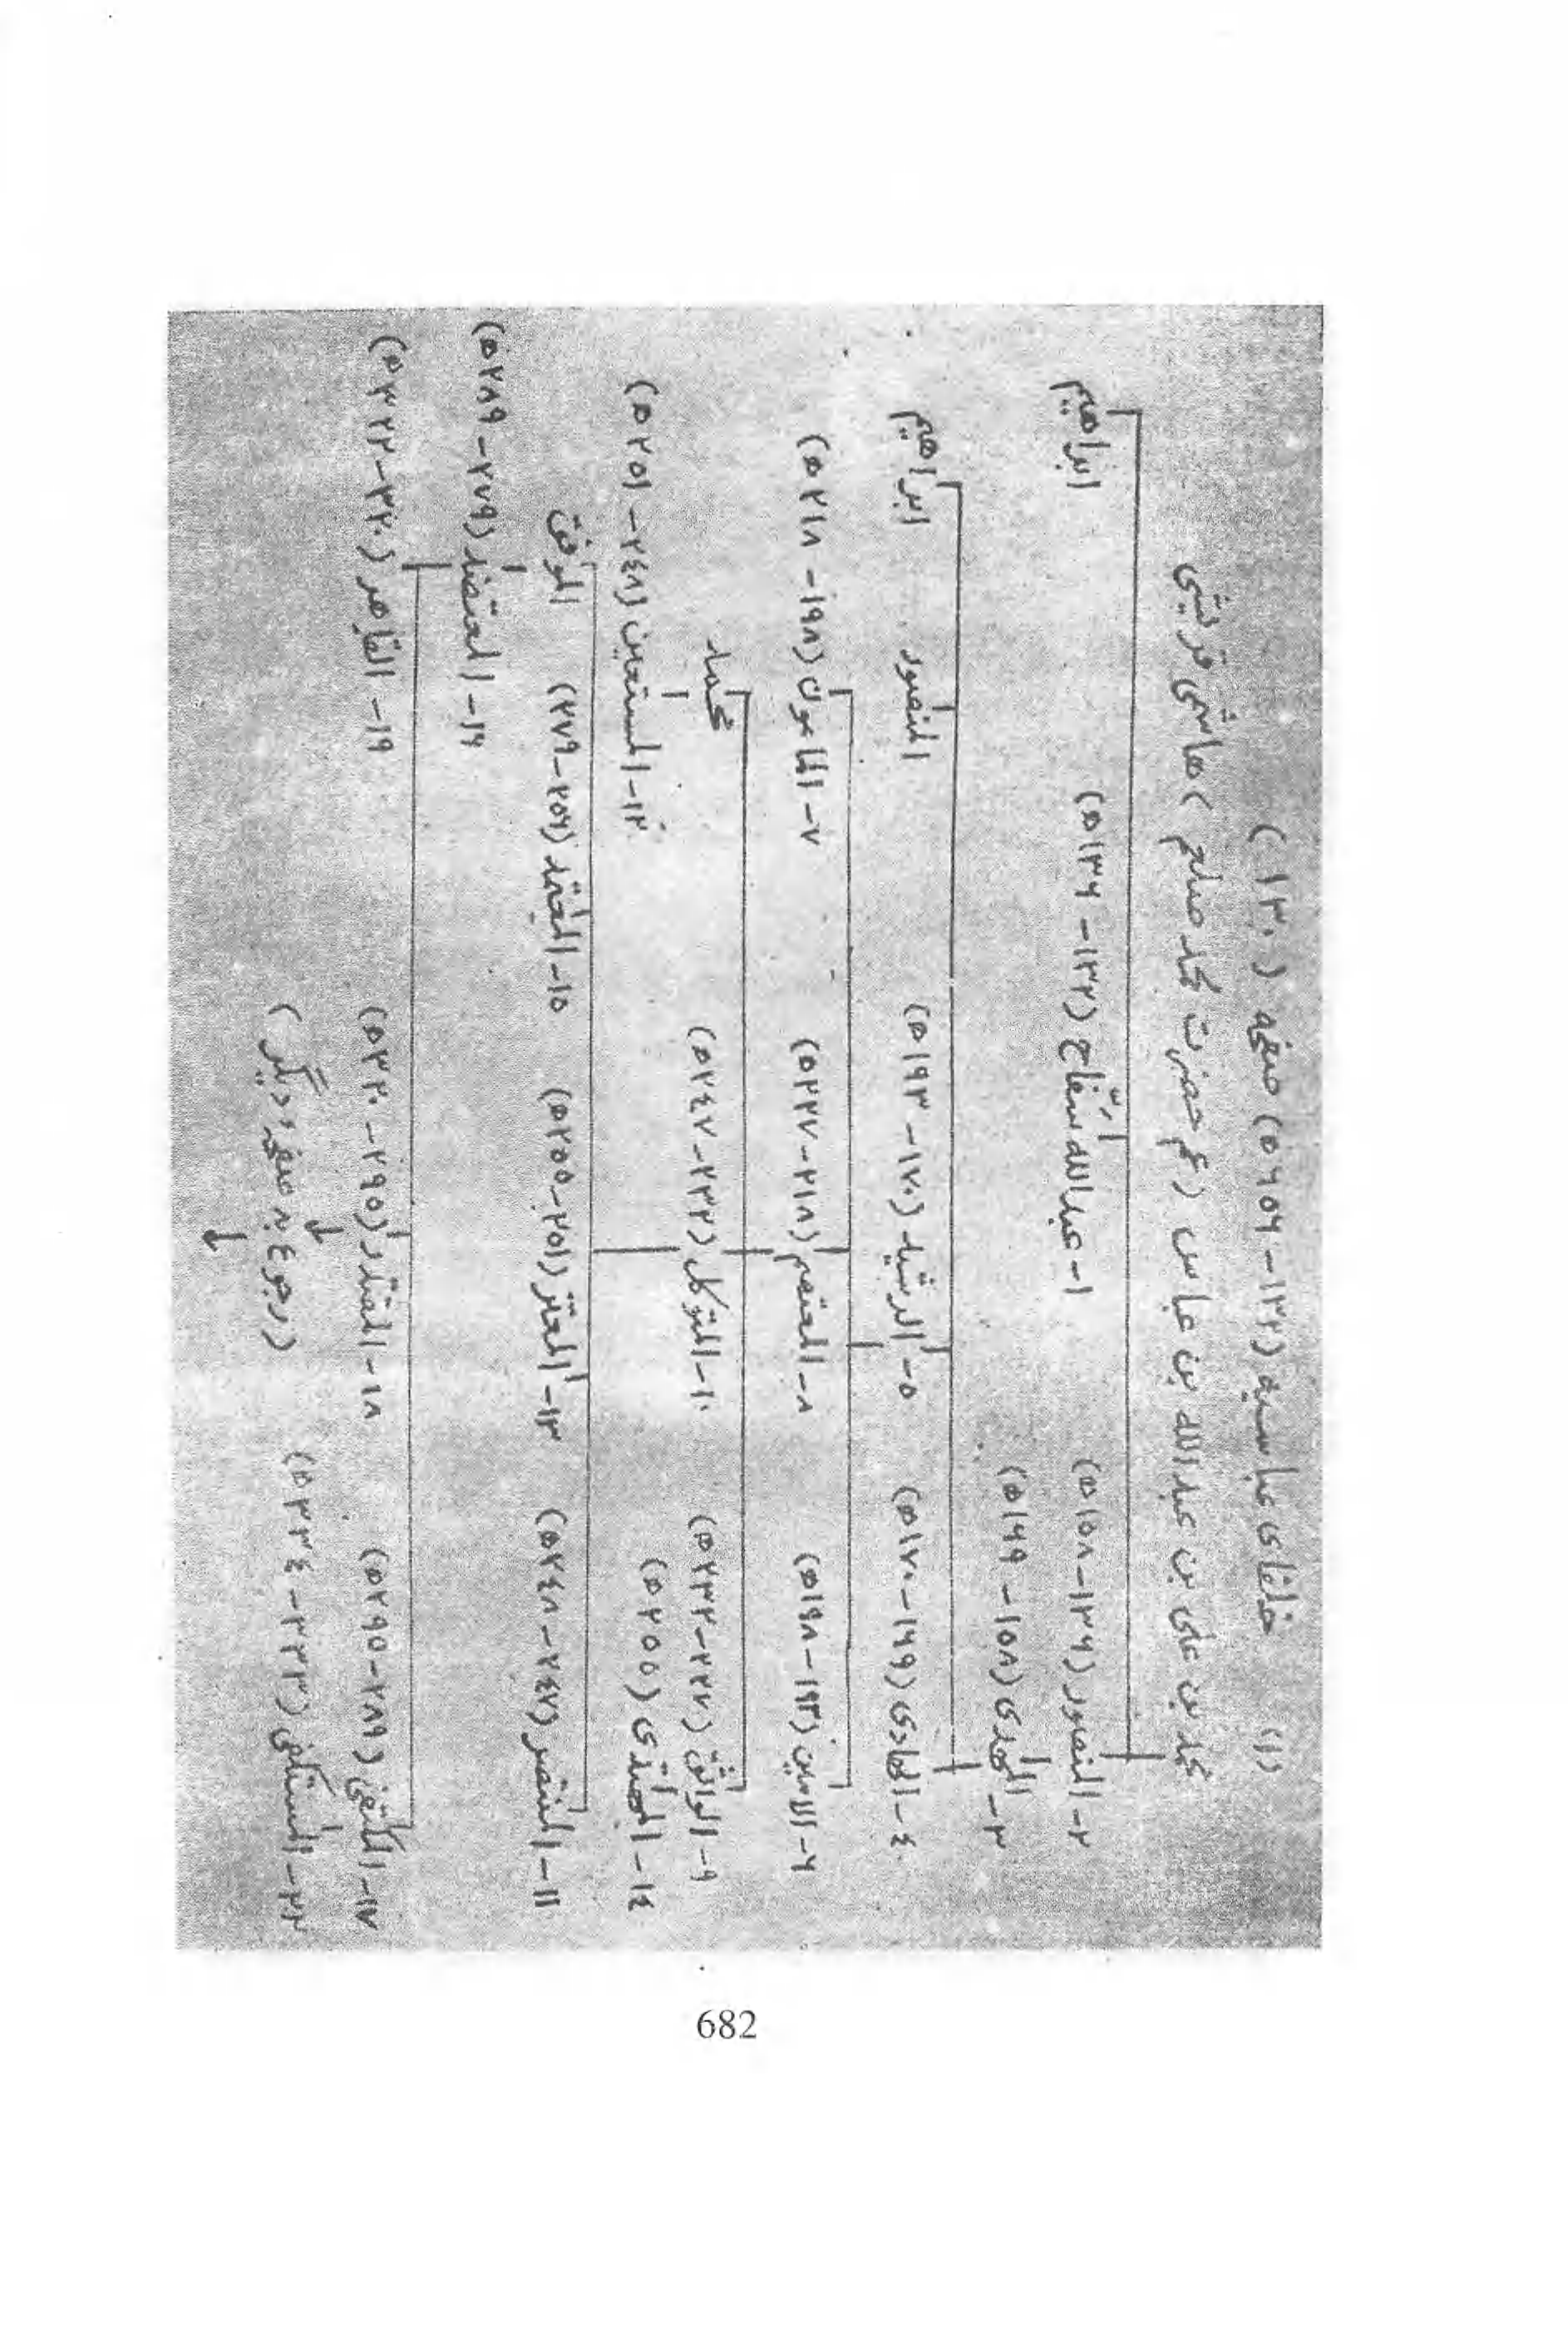 (۱) خلفای عباسیه (۱۳۲-۶۵۶ه) صفحه (۱۳۰)
محمد بن علی بن عبدالله بن عباس (عم حضرت محمد صلعم) هاشمی قریشی
۲- المنصور (۱۳۶-۱۵۸ه) ۱- عبدالله سفّاح (۱۳۲-۱۳۶ه) ابراهیم
۳- المهدی (۱۵۸-۱۶۹ه)
٤- الهادی (۱۶۹-۱۷۰ه) ۵- الرشید (۱۷۰-۱۹۳ه) المنصور ابراهیم
۶- الامین (۱۹۳-۱۹۸ه) ۸- المعتصم (۲۱۸-۲۲۷ه) ۷- المامون (۱۹۸-۲۱۸ه)
۹- الواثق (۲۲۷-۲۳۲ه) ۱۰- المتوکل (۲۳۲-۲٤۷ه) محمد
۱٤- المهتدی (۲۵۵ه) ۱۲- المستعین (۲٤۸-۲۵۱ه)
۱۱- المنتصر (۲٤۷-۲٤۸ه) ۱۳- المعتز (۲۵۱-۲۵۵ه) ۱۵- المعتمد (۲۵۶-۲۷۹) الموفق
۱۶- المعتضد (۲۷۹-۲۸۹ه)
۱۷- المکتفی (۲۸۹-۲۹۵ه) ۱۸- المقتدر (۲۹۵-۳۲۰ه) ۱۹- القاهر (۳۲۰-۳۲۲ه)
۲۲- المستکفی (۳۳۳-۳۳٤ه) (رجوع به صفحهٔ دیگر)
682